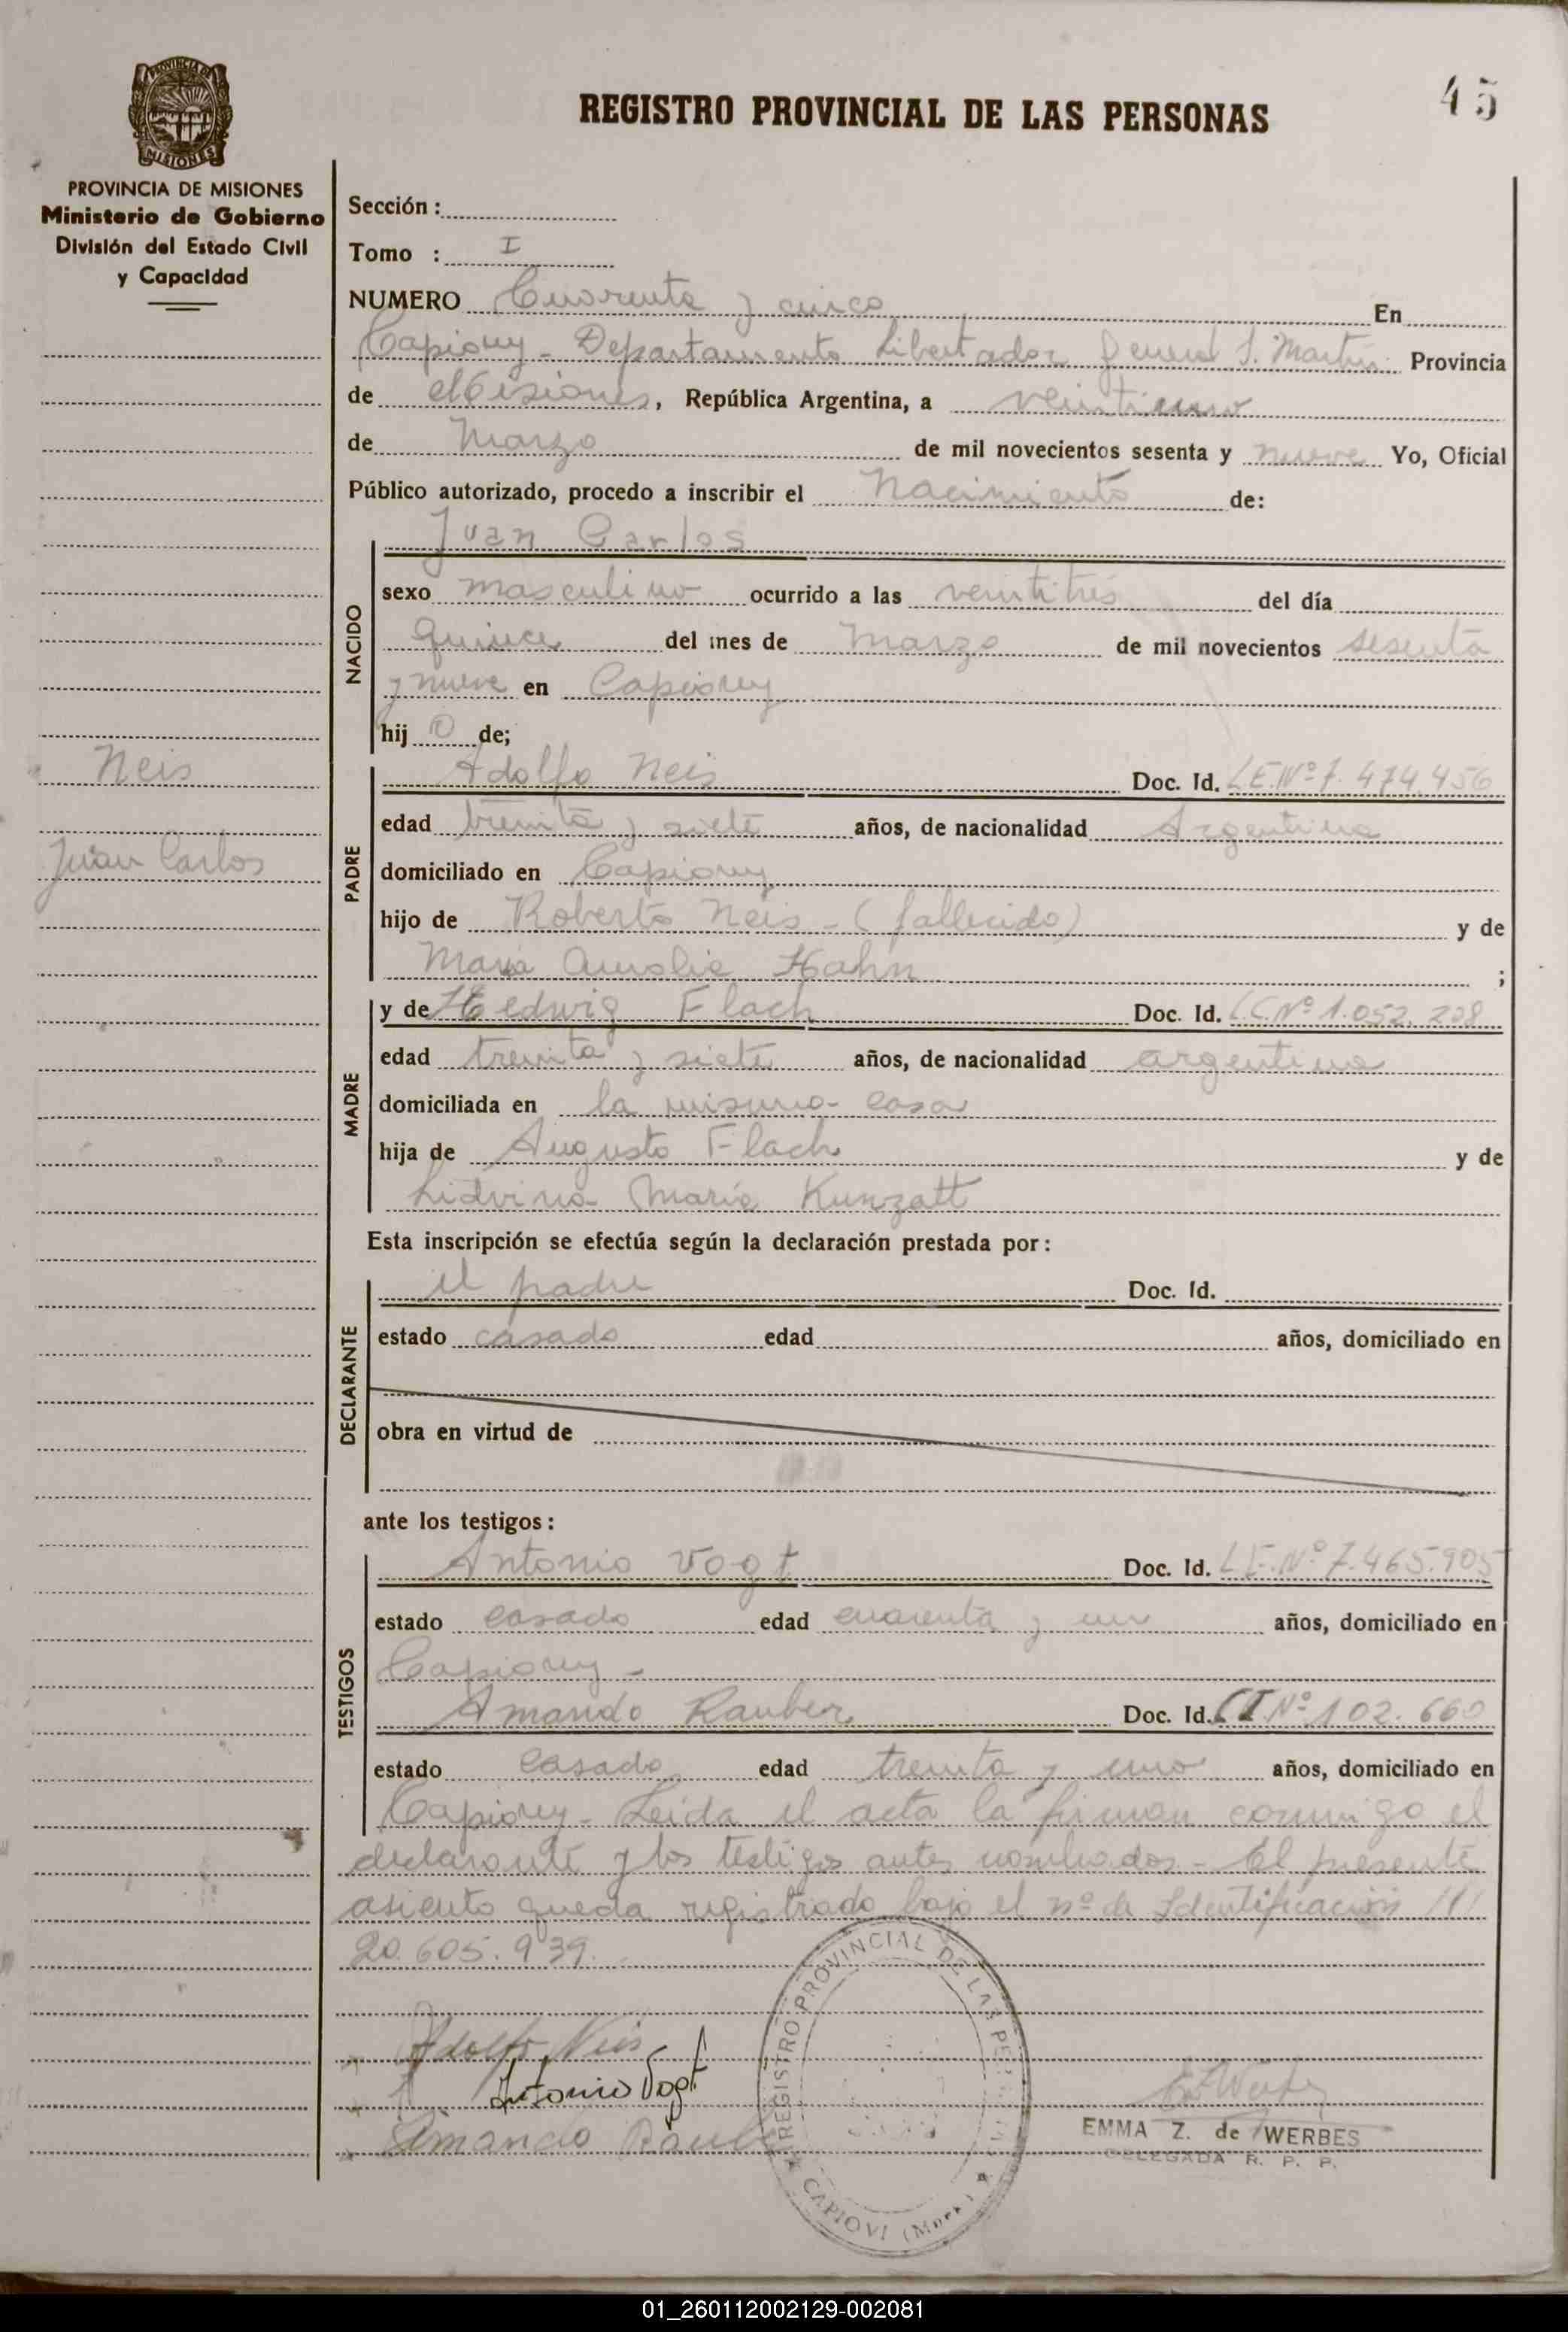 45
REGISTRO PROVINCIAL DE LAS PERSONAS
PROVINCIA DE MISIONES
MISIONES
PROVINCIA DE MISIONES
Ministerio de Gobierno
División del Estado Civil
y Capacidad
Sección :
Tomo : I
NUMERO Cuarenta y cinco En
Capiovy - Departamento Libertador General S. Martín Provincia
de Misiones, República Argentina, a veintiuno
de Marzo de mil novecientos sesenta y nueve Yo, Oficial
Público autorizado, procedo a inscribir el Nacimiento de:
NACIDO
Juan Carlos
sexo masculino ocurrido a las veintitrés del día
quince del mes de Marzo de mil novecientos sesenta
y nueve en Capiovy
hij o de;
Neis
Juan Carlos
PADRE
Adolfo Neis Doc. Id. L.E.Nº 7.474.456
edad treinta y siete años, de nacionalidad Argentina
domiciliado en Capiovy
hijo de Roberto Neis - (fallecido) y de
María Amalia Hahn ;
MADRE
y de Hedwig Flach Doc. Id. L.C.Nº 1.052.228
edad treinta y siete años, de nacionalidad argentina
domiciliada en la misma casa
hija de Augusto Flach y de
Lidvina María Kunzatt
Esta inscripción se efectúa según la declaración prestada por:
DECLARANTE
el padre Doc. Id.
estado casado edad años, domiciliado en
obra en virtud de
ante los testigos:
TESTIGOS
Antonio Vogt Doc. Id. L.E.Nº 7.465.905
estado casado edad cuarenta y un años, domiciliado en
Capiovy -
Amando Rauber Doc. Id. C.I Nº 102.660
estado casado edad treinta y uno años, domiciliado en
Capiovy - Leida el acta la firman conmigo el
declarante y los testigos antes nombrados - El presente
asiento queda registrado bajo el nº de Identificación ///
20.605.939.
Adolfo Neis
Antonio Vogt
Amando Rauber
REGISTRO PROVINCIAL DE LAS PE
CAPIOVI (Mnes.)
EMMA Z. de WERBES
DELEGADA R. P. P.
01_260112002129-002081